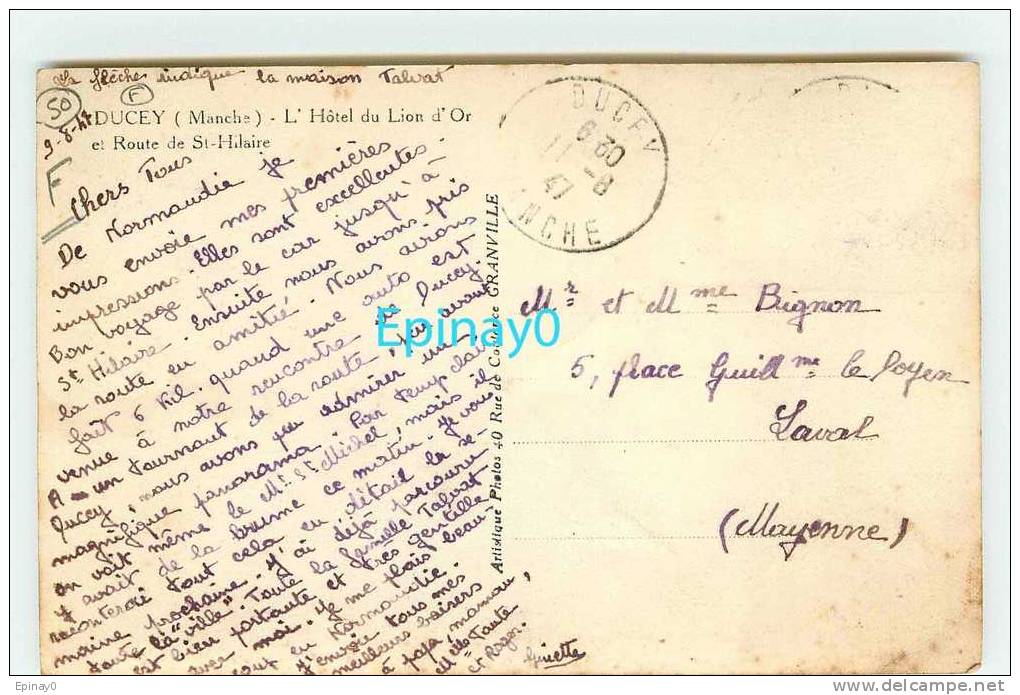 La flèche indique la maison Talvat
50
F
DUCEY (Manche) - L'Hôtel du Lion d'Or
et Route de St-Hilaire
9-8-47
F
Chers Tous
De Normandie je
vous envoie mes premières
impressions. Elles sont excellentes.
Bon voyage par le car jusqu'à
St Hilaire. Ensuite nous avons pris
la route en amitié. Nous avions
fait 6 kil. quand une auto est
venue à notre rencontre de Ducey.
A un tournant de la route, peu avant
Ducey, nous avons pu admirer un
magnifique panorama. Par temps clair
on voit même le Mt St Michel, mais il
y avait de la brume ce matin. Je vous
raconterai tout cela en détail la se-
maine prochaine. J'ai déjà parcouru
toute la "ville". Toute la famille Talvat
est bien portante et très gentille
avec moi. Je me plais beau-
coup en Normandie.
J'envoie tous mes
meilleurs baisers
à papa, maman,
Mlle Toute
et Roger.
Ginette
Artistique Photos 40 Rue de Coutance GRANVILLE
DUCEY
6-30
11-8
47
MCHE
Mr et Mme Bignon
5, place Guillme le Doyen
Laval
(Mayenne)
Epinay0
Epinay0
delcampe.net